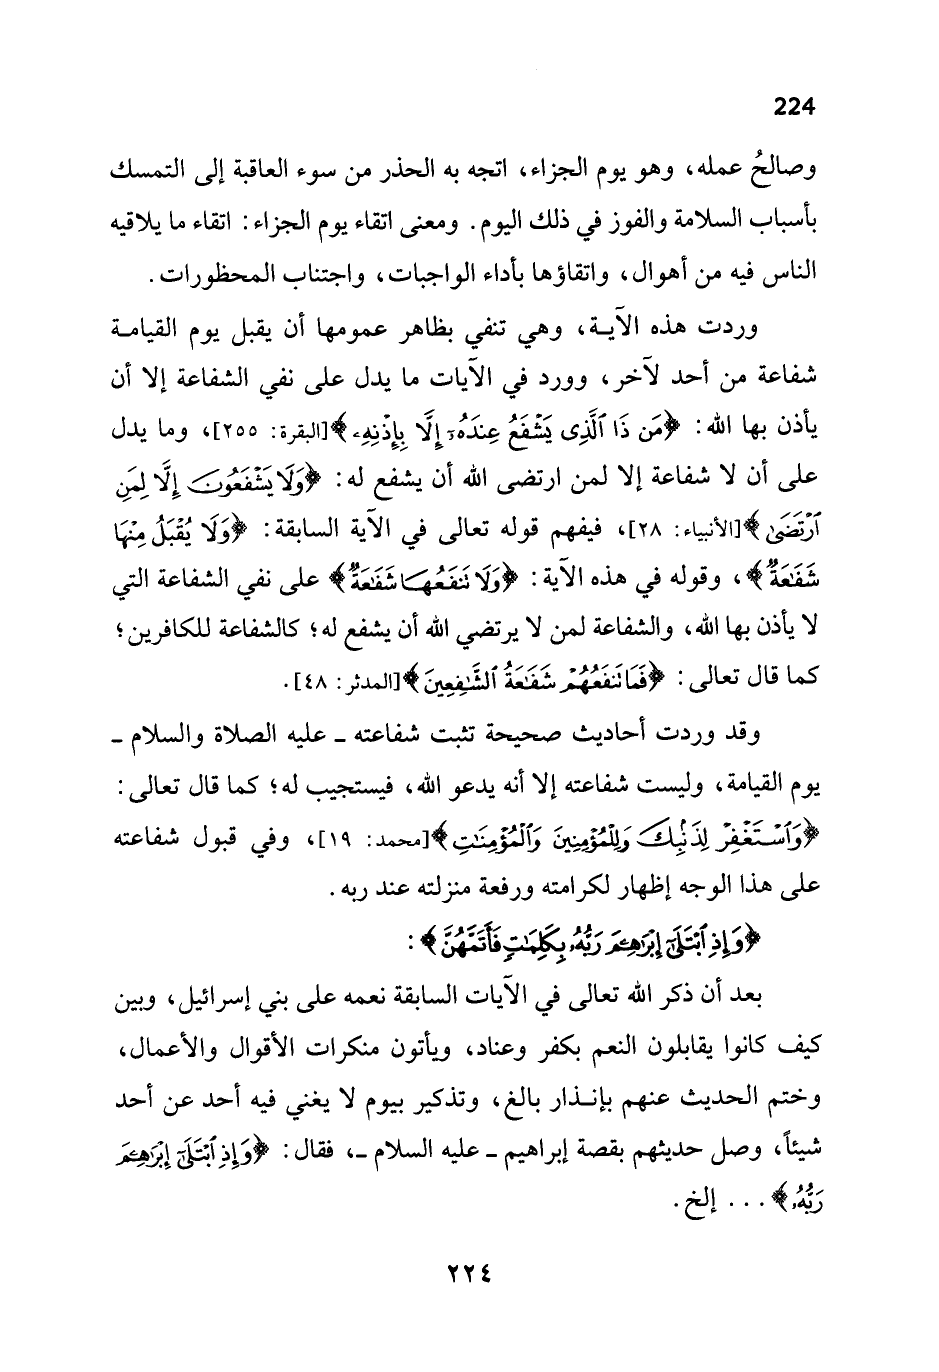 224
وصالحُ عمله، وهو يوم الجزاء، اتجه به الحذر من سوء العاقبة إلى التمسك
بأسباب السلامة والفوز في ذلك اليوم. ومعنى اتقاء يوم الجزاء: اتقاء ما يلاقيه
الناس فيه من أهوال، واتقاؤها بأداء الواجبات، واجتناب المحظورات.
وردت هذه الآيـة، وهي تنفي بظاهر عمومها أن يقبل يوم القيامـة
شفاعة من أحد لآخر، وورد في الآيات ما يدل على نفي الشفاعة إلا أن
يأذن بها الله: ﴿مَن ذَا ٱلَّذِى يَشْفَعُ عِندَهُۥٓ إِلَّا بِإِذْنِهِۦ﴾[البقرة: ٢٥٥]، وما يدل
على أن لا شفاعة إلا لمن ارتضى الله أن يشفع له: ﴿وَلَا يَشْفَعُونَ إِلَّا لِمَنِ
ٱرْتَضَىٰ﴾[الأنبياء: ٢٨]، فيفهم قوله تعالى في الآية السابقة: ﴿وَلَا يُقْبَلُ مِنْهَا
شَفَٰعَةٌ﴾، وقوله في هذه الآية: ﴿وَلَا تَنفَعُهَا شَفَٰعَةٌ﴾ على نفي الشفاعة التي
لا يأذن بها الله، والشفاعة لمن لا يرتضي الله أن يشفع له؛ كالشفاعة للكافرين؛
كما قال تعالى: ﴿فَمَا تَنفَعُهُمْ شَفَٰعَةُ ٱلشَّٰفِعِينَ﴾[المدثر: ٤٨].
وقد وردت أحاديث صحيحة تثبت شفاعته ـ عليه الصلاة والسلام ـ
يوم القيامة، وليست شفاعته إلا أنه يدعو الله، فيستجيب له؛ كما قال تعالى:
﴿وَٱسْتَغْفِرْ لِذَنۢبِكَ وَلِلْمُؤْمِنِينَ وَٱلْمُؤْمِنَٰتِ﴾[محمد: ١٩]، وفي قبول شفاعته
على هذا الوجه إظهار لكرامته ورفعة منزلته عند ربه.
﴿وَإِذِ ٱبْتَلَىٰٓ إِبْرَٰهِـۧمَ رَبُّهُۥ بِكَلِمَٰتٍ فَأَتَمَّهُنَّ﴾:
بعد أن ذكر الله تعالى في الآيات السابقة نعمه على بني إسرائيل، وبين
كيف كانوا يقابلون النعم بكفر وعناد، ويأتون منكرات الأقوال والأعمال،
وختم الحديث عنهم بإنـذار بالغ، وتذكير بيوم لا يغني فيه أحد عن أحد
شيئاً، وصل حديثهم بقصة إبراهيم ـ عليه السلام ـ، فقال: ﴿وَإِذِ ٱبْتَلَىٰٓ إِبْرَٰهِـۧمَ
رَبُّهُۥ﴾... إلخ.
٢٢٤